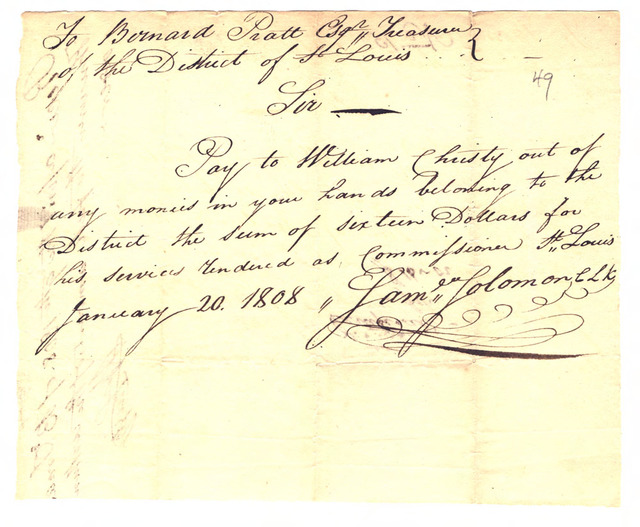 To Bernard Pratt Esqr Treasurer
of the District of St Louis
49
Sir
Pay to William Christy out of
any monies in your hands beloning to the
District the Sum of sixteen Dollars for
his services rendered as Commissioner St Louis
January 20. 1808 Saml Solomon, Clk